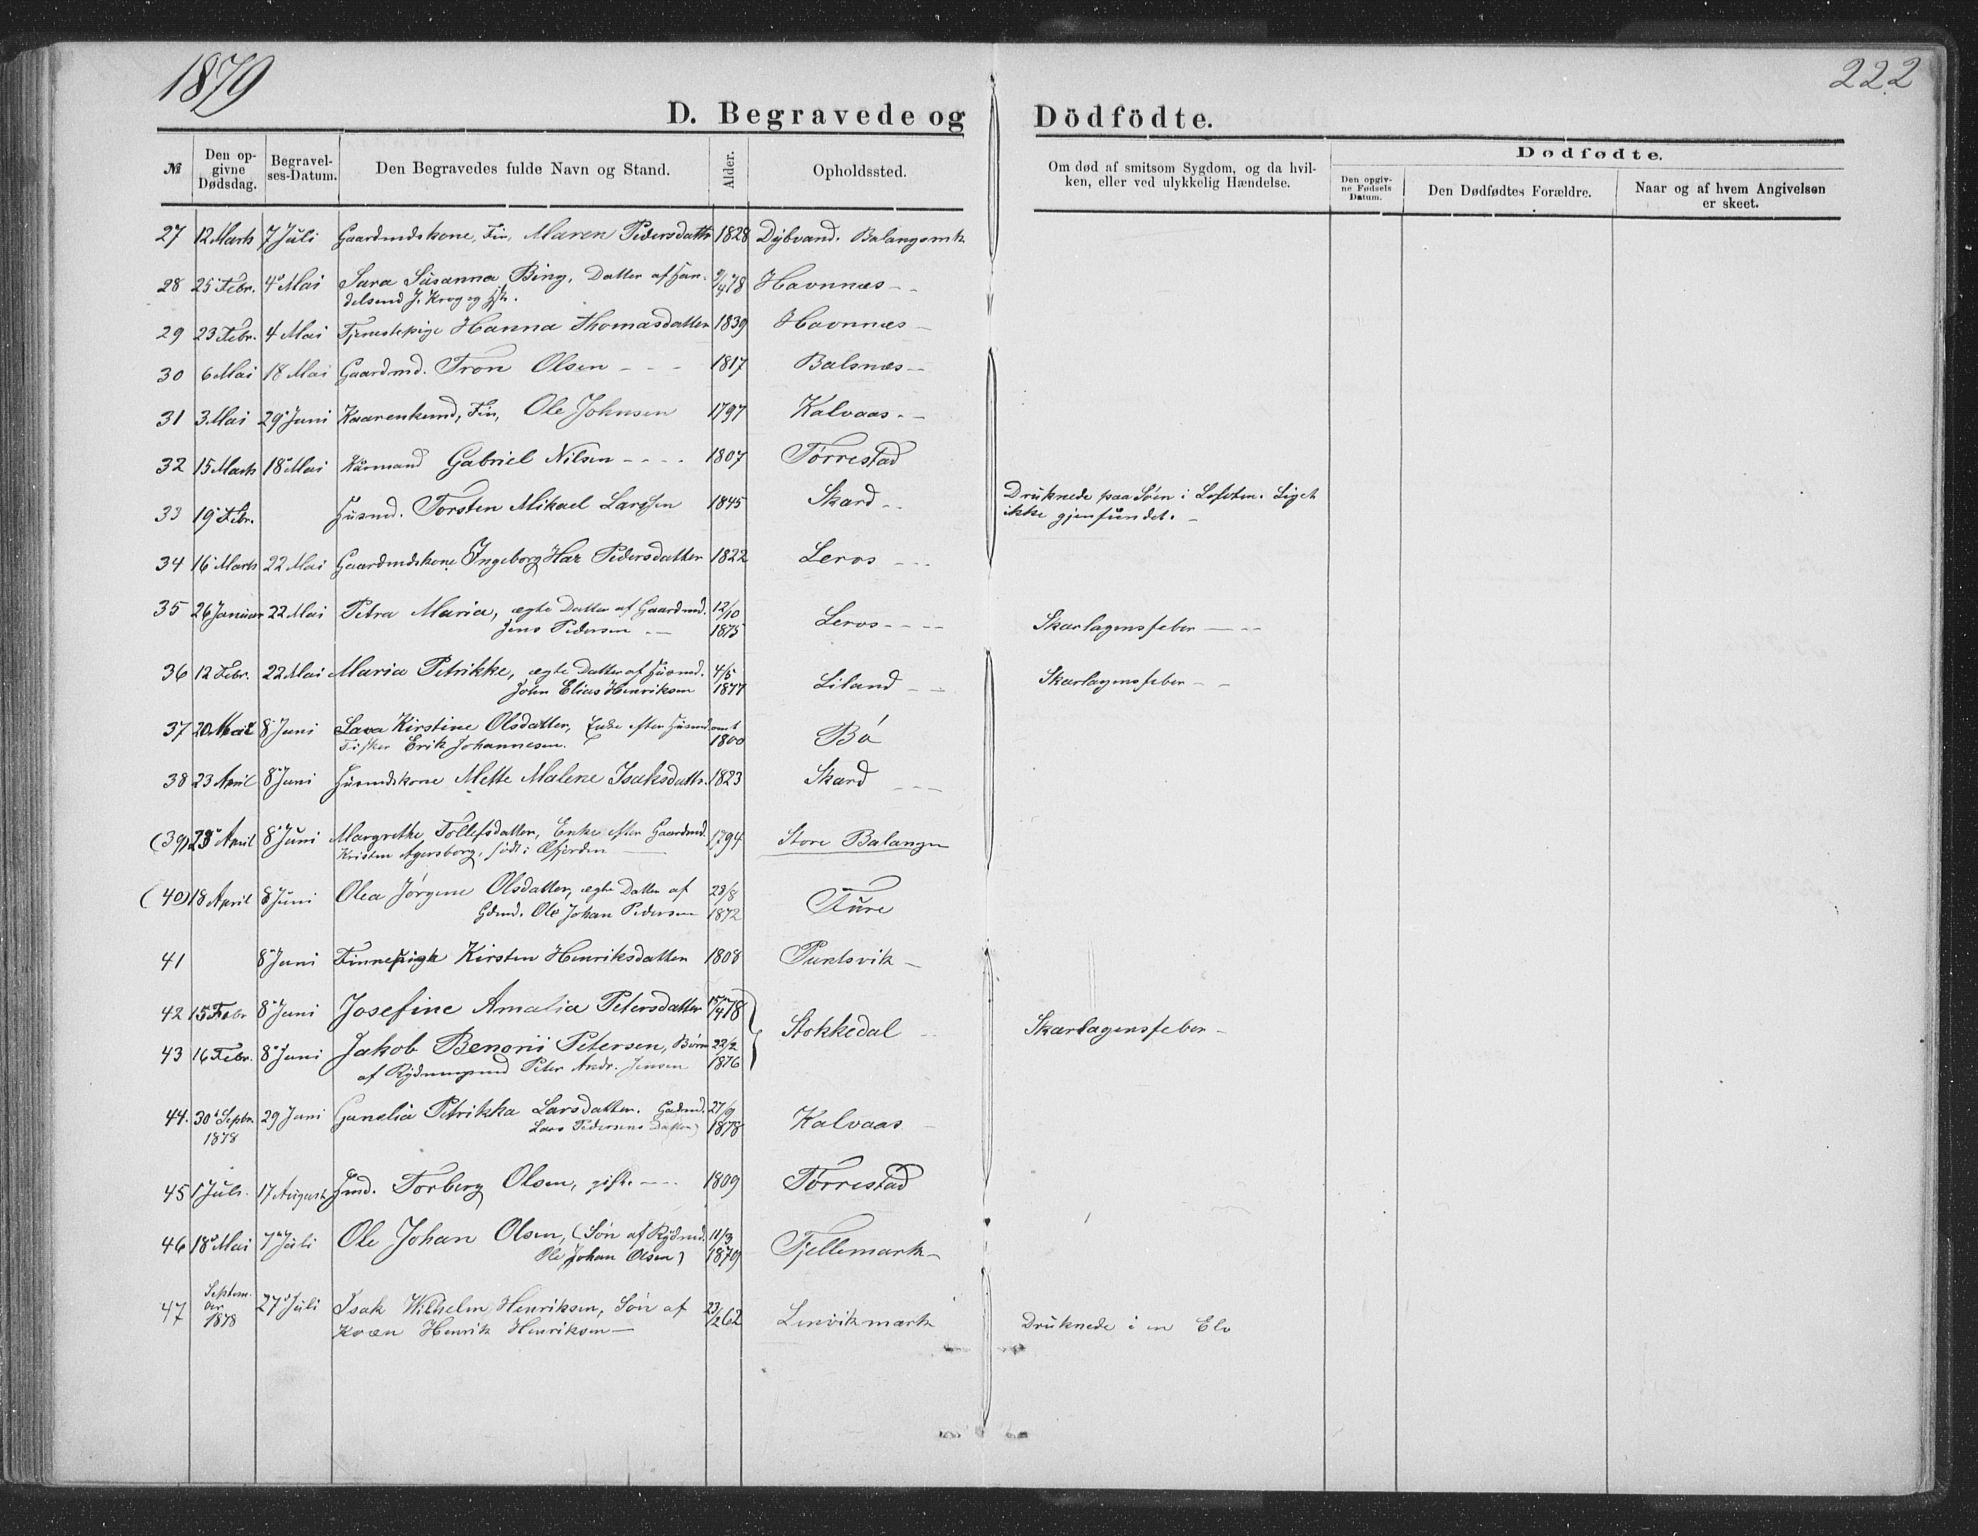 1879
222
D. Begravede og Dödfödte.
№ Den opgivne Dødsdag. Begravelses-Datum. Den Begravedes fulde Navn og Stand. Alder. Opholdssted. Om død af smitsom Sygdom, og da hvilken, eller ved ulykkelig Hændelse.
Dødfødte.
Den opgivne Fødsels Datum. Den Dødfødtes Forældre. Naar og af hvem Angivelsen er skeet.
27 12 Marts 7 Juli Gaardmdskone, Fin, Maren Pedersdattr 1828 Dybvand. Balangsmk
28 25 Febr. 4 Mai Sara Susanna Bing, Datter af Han- 9/4 78 Havnnæs
delsmd J. Krog og Hstr.
29 23 Febr. 4 Mai Tjenestepige Hanna Thomasdatter 1839 Havnnæs
30 6 Mai 18 Mai Gaardmd. Tron Olsen 1817 Balsnæs
31 3 Mai 29 Juni Fin, Ole Johnsen 1797 Kalvaas
32 15 Marts 18 Mai Kaarmand Gabriel Nilsen 1807 Tørrestad
33 19 Febr. Husmd. Torsten Mikael Larssen 1845 Skard Druknede paa Søen i Lofoten. Liget
ikke gjenfundet.
34 16 Marts 22 Mai Gaardmdskone Ingeborg Har Pedersdatter 1822 Leros
35 26 Januar 22 Mai Petra Maria, ægte Datter af Gaardmd. 12/10 Leros Skarlagensfeber
Jens Pedersen 1875
36 12 Febr. 22 Mai Maria Petrikke, ægte Datter af Husmd. 4/5 Liland Skarlagensfeber
John Elias Henriksen 1877
37 20 8 Juni Lava Kirstine Olsdatter, Enke efter Husmd omt Bø
Fisker Erik Johannesen. 1800
38 23 April 8 Juni Husmdskone Mette Malene Isaksdattr. 1823 Skard
(39) 23 April 8 Juni Margrethe Tollefsdatter, Enke efter Gaardmd. 1794 Store Balangen
Kristen Agersborg, født i Efjorden
(40) 18 April 8 Juni Olea Jørgine Olsdatter, ægte Datter af 28/8 Ture
Gdmd. Ole Johan Pedersen 1872
41 8 Juni Finnepige Kirsten Henriksdatter 1808 Puntsvik
42 15 Febr 8 Juni Josefine Amalia Petersdatter 15/4 78 Stokkedal Skarlagensfeber
43 16 Febr. 8 Juni Jakob Benoni Petersen, Børn 22/2
af Rydningsmd Peter Andr. Jensen 1876
44. 30 Septbr. 29 Juni Gunelia Petrikka Larsdatter. Gadmd. 27/9 Kalvaas
1878 Lars Pedersens Datter) 1878
45 1 Juli 17 August Hmd. Torberg Olsen, gift. 1809 Tørrestad
46 18 Mai 7 Juli Ole Johan Olsen, (Søn af Rydmd. 11/3 Fjellemark
Ole Johan Olsen) 1879
47 Septem- 27 Juli Isak Wilhelm Henriksen, Søn af 23/2 62 Lenvikmark Druknede i en Elv
ber
1878 Kvæn Henrik Henriksen